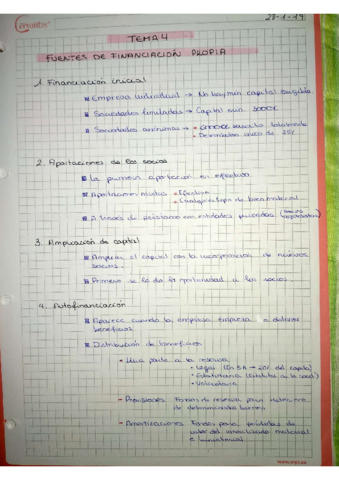 28-1-19
TEMA 4
FUENTES DE FINANCIACIÓN PROPIA
1. Financiación inicial
Empresa individual → No hay mín capital exigible
Sociedades limitadas → Capital mín. 3000€
Sociedades anónimas → 60000€ suscrito totalmente
Desembolso mínimo de 25%
2. Aportaciones de los socios
La primera aportación en efectivo
Aportaciones mixtas → Efectivo
Cualquier tipo de bien material
A través de préstamo con entidades privadas
3. Ampliación de capital
Ampliar el capital con la incorporación de nuevos
socios.
Primero se le da la prioridad a los socios
4. Autofinanciación
Aparece cuando la empresa empieza a obtener
beneficios
Distribución de beneficios
Una parte a la reserva
Legal (En SA → 20% del capital)
Estatutaria
Voluntaria
Provisiones Fondos de reserva para
de determinados bienes
Amortizaciones Fondos para pérdidas de
valor del inmovilizado material
e inmaterial